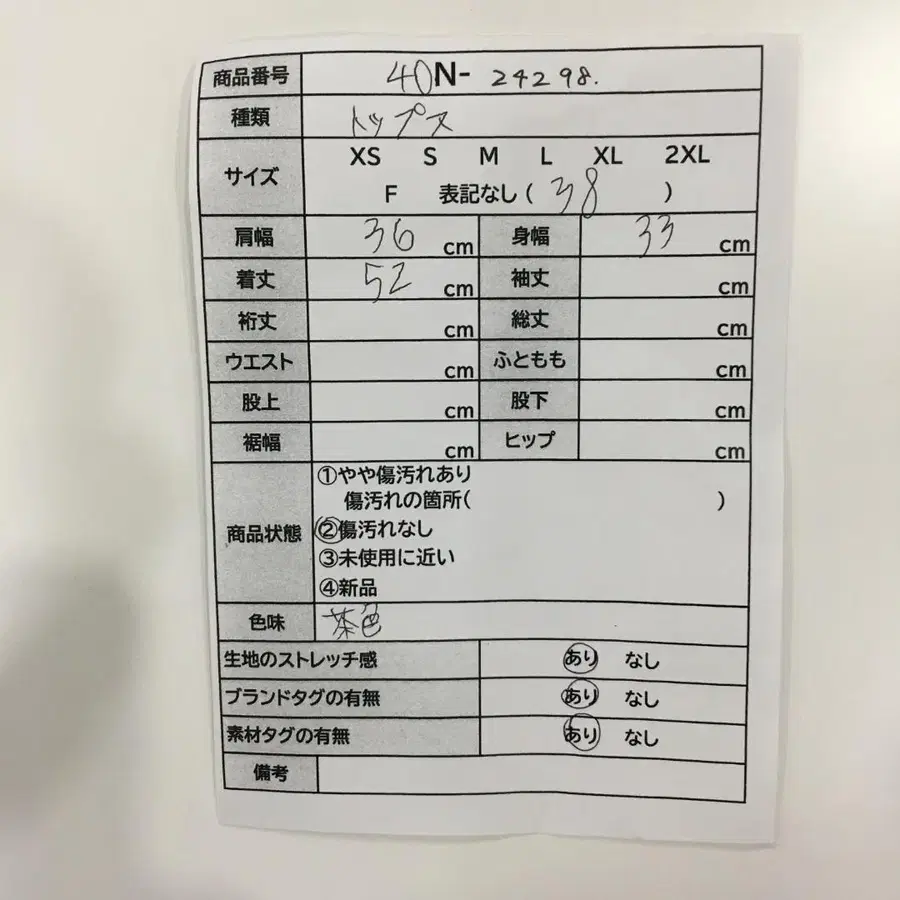 商品番号 40N- 24298.
種類 トップス
サイズ XS S M L XL 2XL
F 表記なし ( 38 )
肩幅 36 cm 身幅 33 cm
着丈 52 cm 袖丈 cm
裄丈 cm 総丈 cm
ウエスト cm ふともも cm
股上 cm 股下 cm
裾幅 cm ヒップ cm
商品状態 ①やや傷汚れあり
傷汚れの箇所( )
②傷汚れなし
③未使用に近い
④新品
色味 茶色
生地のストレッチ感 あり なし
ブランドタグの有無 あり なし
素材タグの有無 あり なし
備考